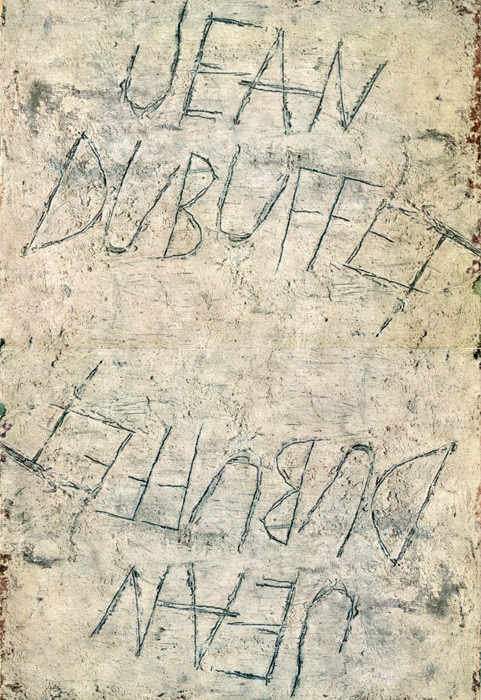 JEAN
DUBUFFET
JEAN
DUBUFFET